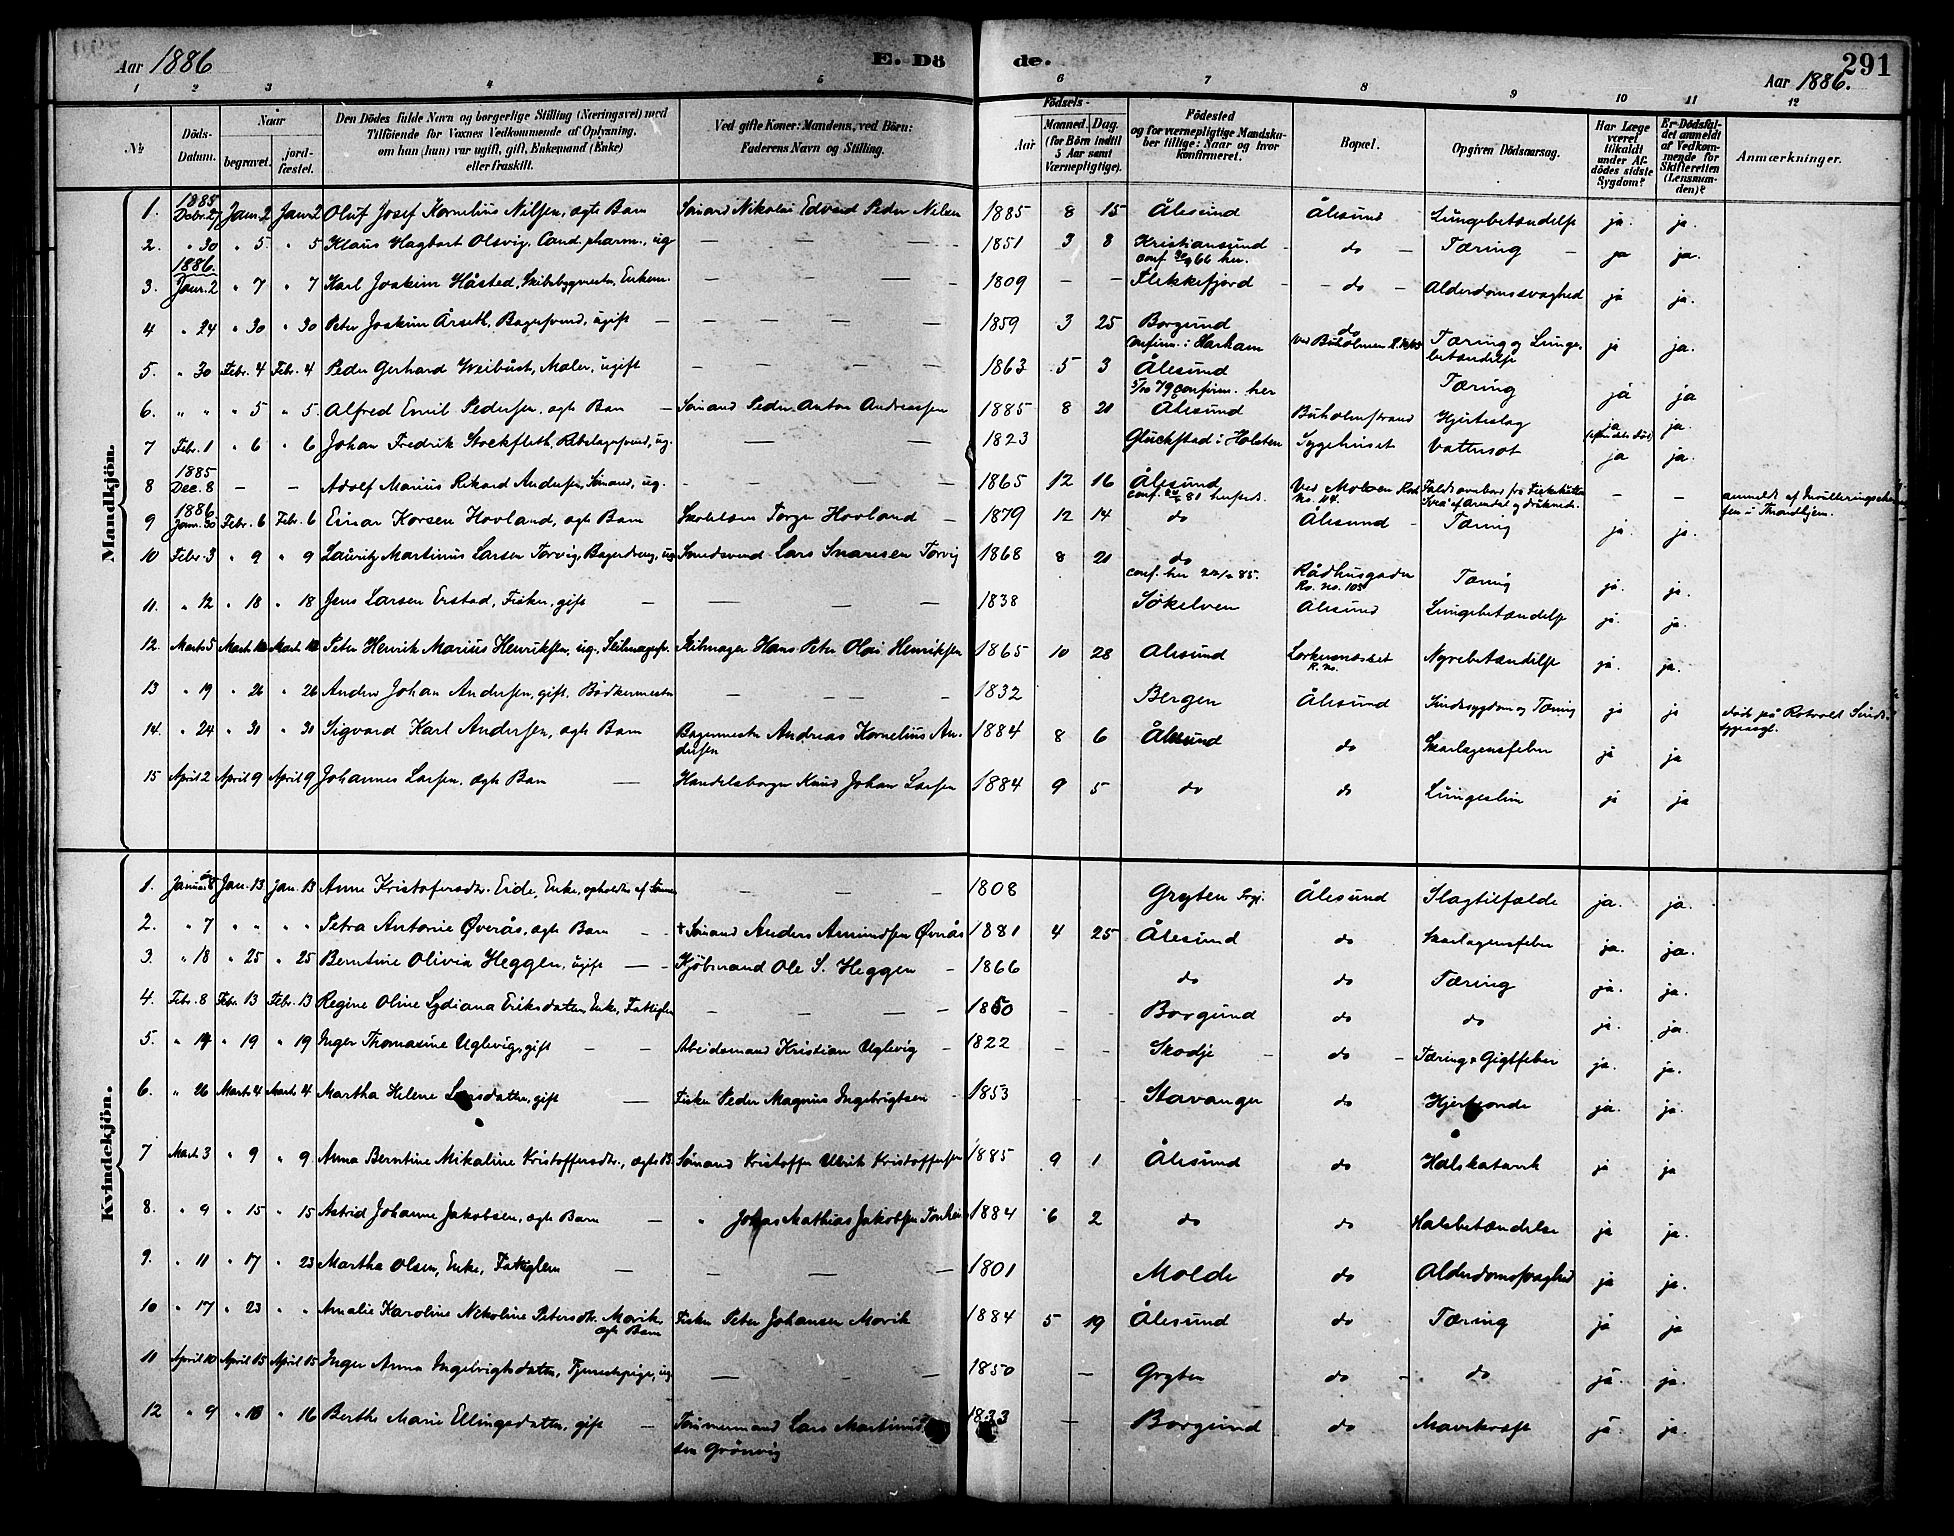 Aar 1886 E. Dö de. 291
Aar 1886.
1 2 3 4 5 6 7 8 9 10 11 12
No Döds-Datum. Naar begravet. jord-fæstet. Den Dödes fulde Navn og borgerlige Stilling (Næringsvei) med Tilföiende for Voxnes Vedkommende af Oplysning, om han (hun) var ugift, gift, Enkemand (Enke) eller fraskilt. Ved gifte Koner: Mandens, ved Börn: Faderens Navn og Stilling. Födsels- Aar Maaned. Dag. (for Börn indtil 5 Aar samt Værnepligtige). Födested og for værnepligtige Mandskaber tillige: Naar og hvor konfirmeret. Bopæl. Opgiven Dödsaarsag. Har Læge været tilkaldt under Afdödes sidste Sygdom? Er Dödsfaldet anmeldt af Vedkommende for Skifteretten (Lensmanden)? Anmærkninger.
Mandkjön.
1. 1885 Decbr. 27 Janr. 2 Janr. 2 Oluf Josef Kornelius Nilsen, ægte Barn Sömand Nikolai Edvard Peder Nilsen 1885 8 15 Ålesund Ålesund Lungebetændelse ja. ja.
2. " 30 " 5 " 5 Klaus Hagbart Olsvig, Cand. pharm., ug — — — — 1851 3 8 Kristiansund do Tæring ja ja.
conf. 66 her.
3. 1886. Janr. 2 " 7 " 7 Karl Joakim Håsted, Skibsbygmester, Enkem. — — 1809 — — Flekkefjord do Alderdomssvaghed ja ja.
4 " 24 " 30 " 30 Peter Joakim Årseth, Bagersvend, ugift — — — — 1859 3 25 Borgund do Tæring og Lunge-
confirm. i Harham Ved Buholmen betændelse ja ja.
5. " 30 Febr. 4 Febr. 4 Peder Gerhard Weibust, Maler, ugift — — — — 1863 5 3 Ålesund
5/10 79 confirm. her Tæring ja ja
6. " " " 5 " 5. Alfred Emil Pedersen, ægte Barn — Sömand Peder Anton Andreassen 1885 8 20 Ålesund Buholmstrand Hjerteslag ja ja.
7 Febr. 1 " 6 " 6. Johan Fredrik Stockfleth, Rebslagersvend, ug. — — 1823 Glückstad i Holsten Sygehuset Vattersot ja ja.
8 1885 Dec. 8 — — Adolf Marius Rikard Andersen, Sömand, ug. — — — — 1865 12 16 Ålesund Ved Molven — — anmeldt af
conf. 81 No. 114. i Throndhjem.
9 1886 Janr. 30 Febr. 6 Febr. 6 Einar Korsen Hovland, ægte Barn Skolelærer Torger Hovland — 1879 12 14 do Ålesund Tæring ja. ja.
10 Febr. 3 " 9 " 9 Lauritz Martinus Larsen Torvig, Bagerdreng, ug Smedsvend Lars Snaresen Torvig 1868 8 20 do Rådhusgaden Tæring ja. ja.
conf. her 85. Ro. No. 105
11. " 12 " 18 " 18 Jens Larsen Erstad, Fisker, gift — — — — 1838 Sökelven Ålesund Lungebetændelse ja. ja.
12. Marts 5 Marts 12 Marts 12 Peter Henrik Marius Henriksen, ug. Seilmagersv. Seilmager Hans Peter Olai Henriksen 1865 10 28 Ålesund Lorkenæsset Nyrebetændelse ja. ja.
13 " 19 " 26 " 26 Anders Johan Andersen, gift, Bödkermester — — — — 1832 Bergen Ålesund Sindssygdom og Tæring ja ja död på Rotvold Sinds-
sygeasyl.
14. " 24 " 30 " 30 Sigvard Karl Andersen, ægte Barn Bagermester Andreas Kornelius An-
dersen 1884 8 6 Ålesund do Skarlagensfeber ja ja
15 April 2 April 9 April 9 Johannes Larsen, ægte Barn — Handelsborger Knud Johan Larsen 1884 9 5 do do Lungeslim ja ja
Kvindekjön.
1. Januar 8 Jan. 13 jan. 13 Anne Kristofersdtr. Eide, Enke, opholdtes af Sönnen — — 1808 Gryten Ålesund Slagtilfælde ja. ja.
2. " 7 " " " " Petra Antonie Øverås, ægte Barn — — † Sömand Anders Amundsen Øvrås 1881 4 25 Ålesund do Skarlagensfeber ja. ja.
3. " 18 " 25 " 25 Berntine Olivia Heggen, ugift — — Kjöbmand Ole S. Heggen — 1866 do do Tæring ja. ja.
4. Febr. 8 Febr. 13 Febr. 13 Regine Oline Lydiana Eriksdatter, Enke, Fattiglem — — — — 1850 — — Borgund do do ja. ja.
5. " 14 " 19 " 19 Inger Thomasine Uglevig, gift — — Arbeidsmand Kristian Uglevig — 1822 — — Skodje do Tæring & Gigtfeber ja. ja.
6. " 26 Marts 4 Marts 4 Martha Helene Larsdatter, gift — Fisker Peder Magnus Ingebrigtsen — 1853 — — Stavanger do Hjerteonde ja. ja.
7 Marts 3 " 9 " 9 Anna Berntine Mikaline Kristoffersdtr., ægte B. Sömand Kristoffer Ulrik Kristoffersen 1885 9 1 Ålesund do Halskatarrh ja ja
8. " 9 " 15 " 15 Astrid Johanne Jakobsen, ægte Barn — " Johas Mathias Jakobsen 1884 6 2 do do Halsbetændelse ja ja.
9. " 11 " 17 " 23 Martha Olsen, Enke, Fattiglem — — — — 1801 Molde do Alderdomssvaghed ja ja.
10 " 17 " 23 " " Amalie Karoline Nekoline Petersdtr. Morvik, Fisker Peter Johansen Morvik 1884 5 19 Ålesund do Tæring ja ja
ægte Barn
11 April 10 April 15 April 15 Inger Anna Ingebrigtsdatter, Tjenestepige, ug — — — 1850 — Gryten do do ja. ja.
12 " 9 " 16 " 16 Berthe Marie Ellingsdatter, gift — Tömmermand Lars Martinus
sen Grönvig 1833 — Borgund do Mavekræft ja ja.